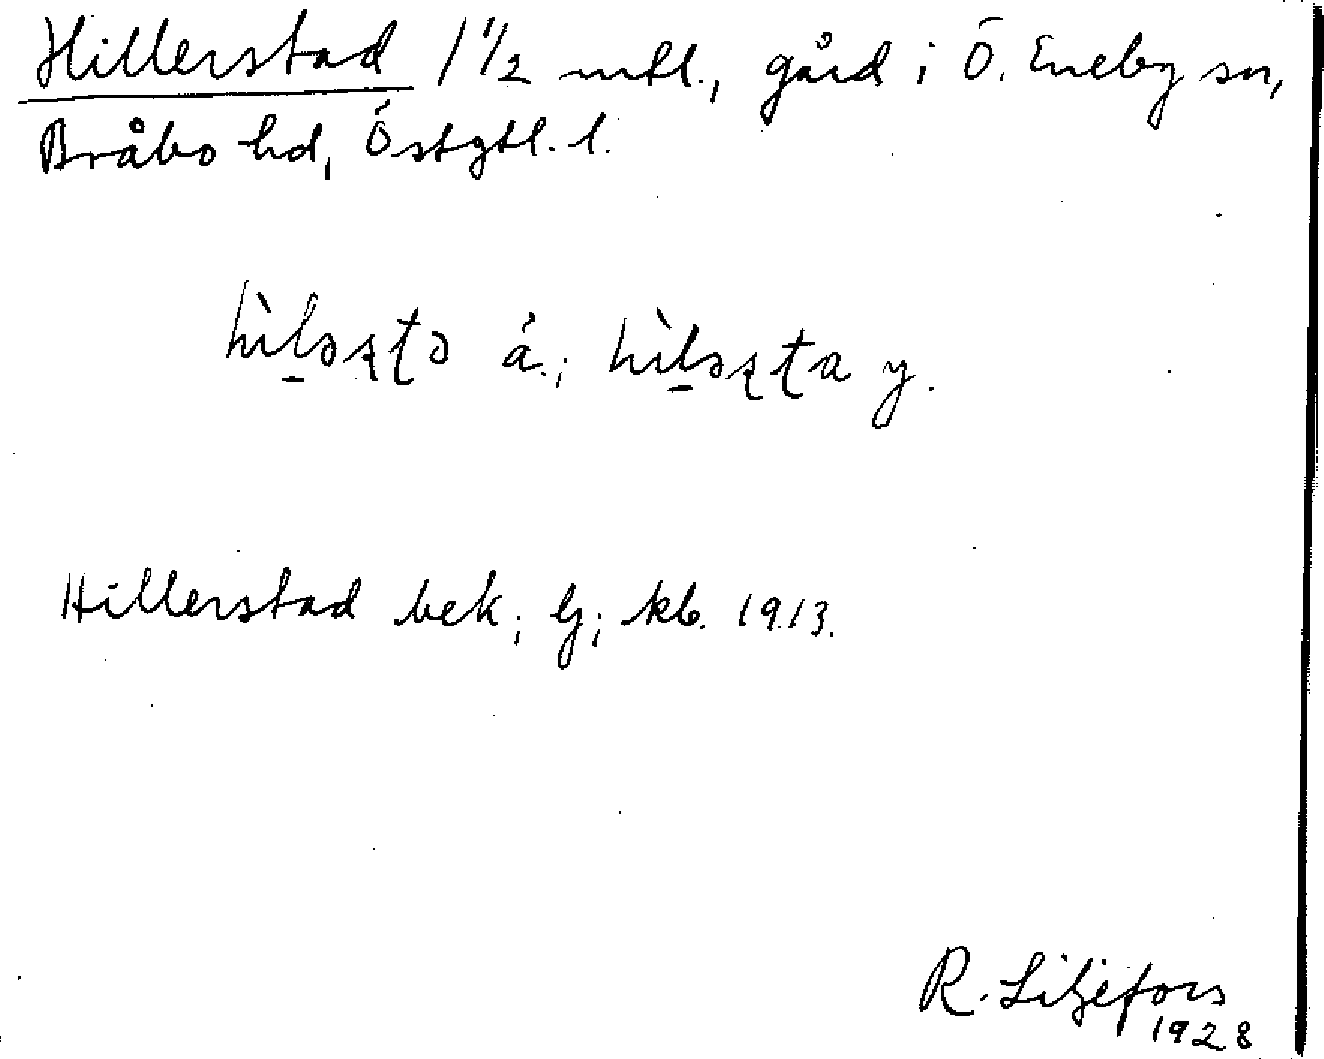 Hillerstad 1 1/2 mtl., gård i Ö. Eneby sn,
Bråbo hd, Östgtl. l.
hìləʂʈə ä.; hìləʂʈa y.
Hillerstad bek; lj; kb. 1913.
R. Liljefors
1928